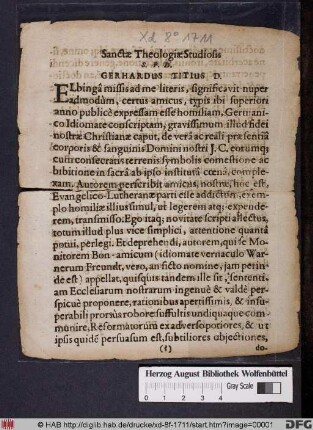 Xd 8° 1711
Sanctæ Theologiæ Studiosis
S. P. D.
GERHARDUS TITIUS D.
ELbingâ missis ad me literis, significavit nuper
admodùm, certus amicus, typis ibi superiori
anno publicè expressam esse homiliam, Germani-
co Idiomate conscriptam, gravissimum illud fidei
nostræ Christianæ caput, de verâ ac reali præsentiâ
corporis & sanguinis Domini nostri J. C. eorumq;
cum consecratis terrenis symbolis comestione ac
bibitione in sacrâ ab ipso institutâ cœnâ, comple-
xam. Autorem perscribit amicus, nostræ, hoc est,
Evangelico-Lutheranæ parti esse addictum, exem-
plo homiliæ illius simul, ut legerem atq; expende-
rem, transmisso. Ego itaq; novitate scripti allectus,
totum illud plus vice simplici, attentione quantâ
potui, perlegi. Et deprehendi, autorem, qui se Mo-
nitorem Bun-amicum (idiomate vernaculo War-
nerum Freundt, vero, an ficto nomine, jam perin-
de est) appellat, quisquis tandem ille sit, sententi-
am Ecclesiarum nostrarum ingenuè & valdè per-
spicuè proponere, rationibus apertissimis, & insu-
perabili prorsus robore suffultis undiquaque com-
munire, Reformatorum ex adverso potiores, & ut
ipsis quidē persuasum est, subtiliores objectiones,
(1)
do-
Herzog August Bibliothek Wolfenbüttel
Gray Scale
© HAB http://diglib.hab.de/drucke/xd-8f-1711/start.htm?image=00001
DFG